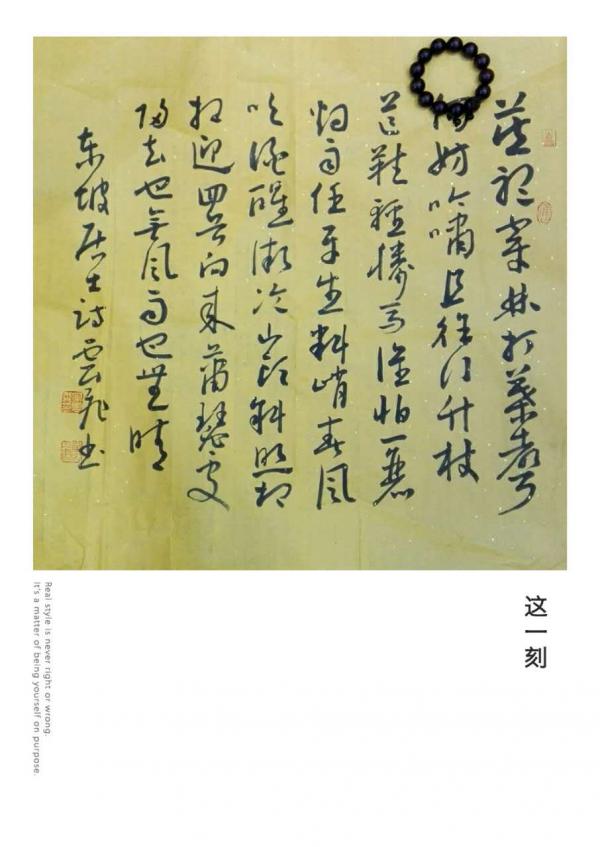 莫聽穿林打葉聲
何妨吟嘯且徐行竹杖
芒鞋輕勝馬誰怕一蓑
烟雨任平生料峭春風
吹酒醒微冷山頭斜照却
相迎回首向來蕭瑟處
歸去也無風雨也無晴
东坡居士詩雲飛书
这一刻
Real style is never right or wrong.
It's a matter of being yourself on purpose.